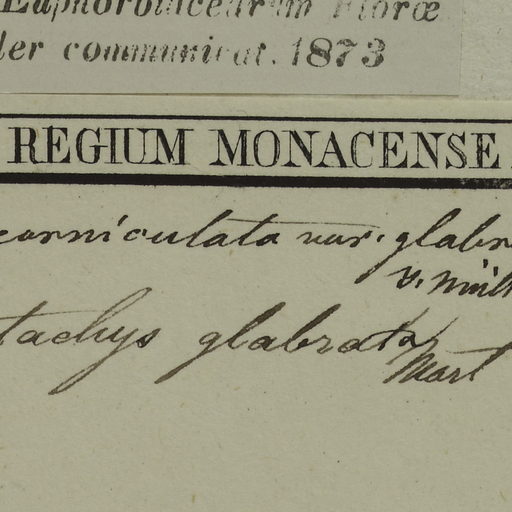 Euphorbiacearum Floræ
ler communicat. 1873
REGIUM MONACENSE
corniculata var. glabr
v. Müll
tachys glabrata
Mart